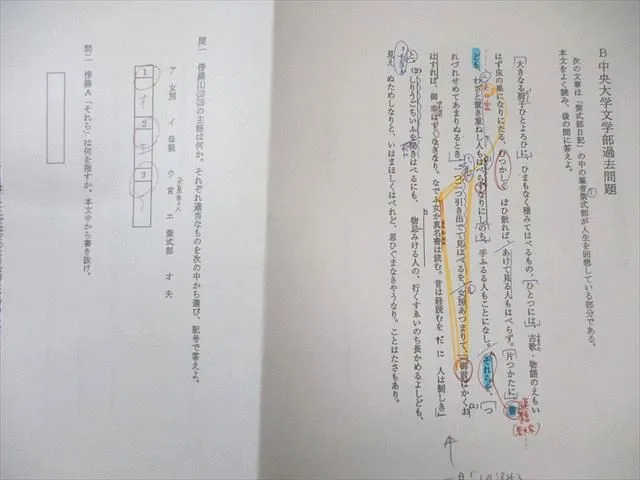 B 中央大学文学部過去問題
次の文章は『紫式部日記』の中の筆者紫式部が人生を回想している部分である。
本文をよく読み、後の問に答えよ。
大きなる厨子ひとよろひに、ひまもなく積みてはべるもの、ひとつには、古歌・物語のえもい
はず虫の巣になりにたる、むつかしくはひ散れば、あけて見る人もはべらず。片つかたに、書
ども、わざと置き重ねし人もはべらずなりにしのち、手ふるる人もことになし。それらを、つ
れづれせめてあまりぬるとき、一つ二つ引き出でて見はべるを、女房あつまりて、「御前はかくお
はすれば、御幸はすくなきなり。なでふ女か真名書は読む。昔は経読むをだに人は制しき」
と、しりうごちいふを聞きはべるにも、物忌みける人の、行くすゑいのち長かめるよしども、
見えぬためしなりと、いはまほしくはべれど、思ひぐまなきやうなり。ことはたさもあり。
問一 傍線(1)(2)(3)の主語は何か。それぞれ適当なものを次の中から選び、記号で答えよ。
ア 女房 イ 母親 ウ 宮 エ 紫式部 オ 夫
1
2
3
問二 傍線A「それら」は何を指すか。本文中から書き抜け。